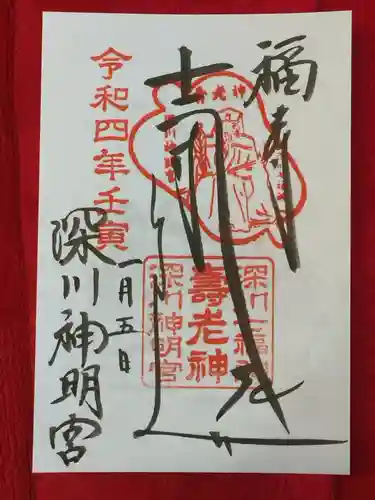 福寿
寿老神
深川神明宮
令和四年壬寅
一月五日
深川神明宮
深川七福神
壽老神
深川神明宮